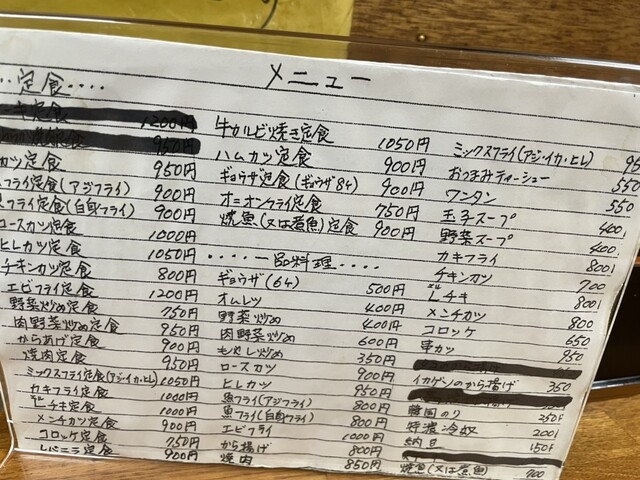 メニュー
‥定食‥‥
定食 1200円
950円
カツ定食 950円
フライ定食(アジフライ) 900円
フライ定食(白身フライ) 900円
ロースカツ定食 1000円
ヒレカツ定食 1050円
チキンカツ定食 800円
エビフライ定食 1200円
野菜炒め定食 750円
肉野菜炒め定食 950円
からあげ定食 900円
焼肉定食 950円
ミックスフライ定食(アジ・イカ・ヒレ) 1050円
カキフライ定食 1000円
チキ定食 1000円
メンチカツ定食 900円
コロッケ定食 750円
レバニラ定食 900円
牛カルビ焼き定食 1050円
ハムカツ定食 900円
ギョウザ定食(ギョウザ8ヶ) 900円
オニオンフライ定食 750円
焼魚(又は煮魚)定食 900円
‥‥一品料理‥‥
ギョウザ(6ヶ) 500円
オムレツ 400円
野菜炒め 400円
肉野菜炒め 600円
もやし炒め 350円
ロースカツ 900円
ヒレカツ 950円
魚フライ(アジフライ) 800円
魚フライ(白身フライ) 800円
エビフライ 1000円
から揚げ 800円
焼肉 850円
ミックスフライ(アジ・イカ・ヒレ) 95
おつまみチャーシュー 550
ワンタン 550
玉子スープ 400
野菜スープ 400
カキフライ 800
チキンカツ 700
チキ 800
メンチカツ 800
コロッケ 650
串カツ 950
イカゲソのから揚げ 350
韓国のり 250
特濃冷奴 200
納豆 150
焼魚(又は煮魚) 900